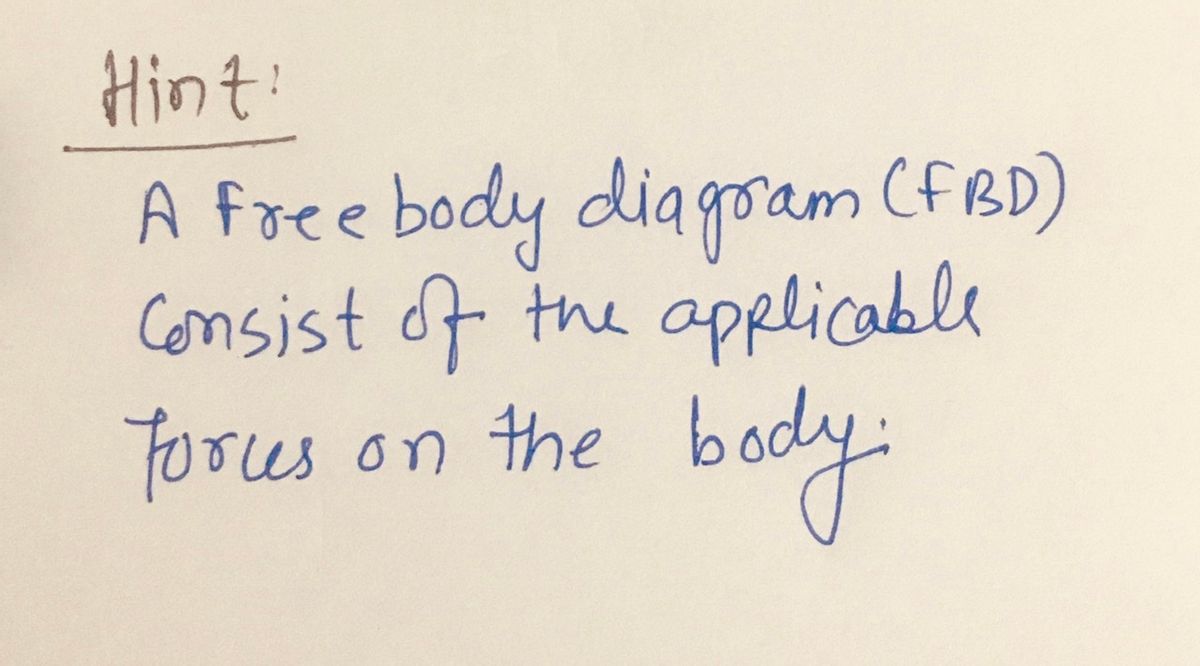 Hint:
A free body diagram (FBD)
Consist of the applicable
forces on the body.